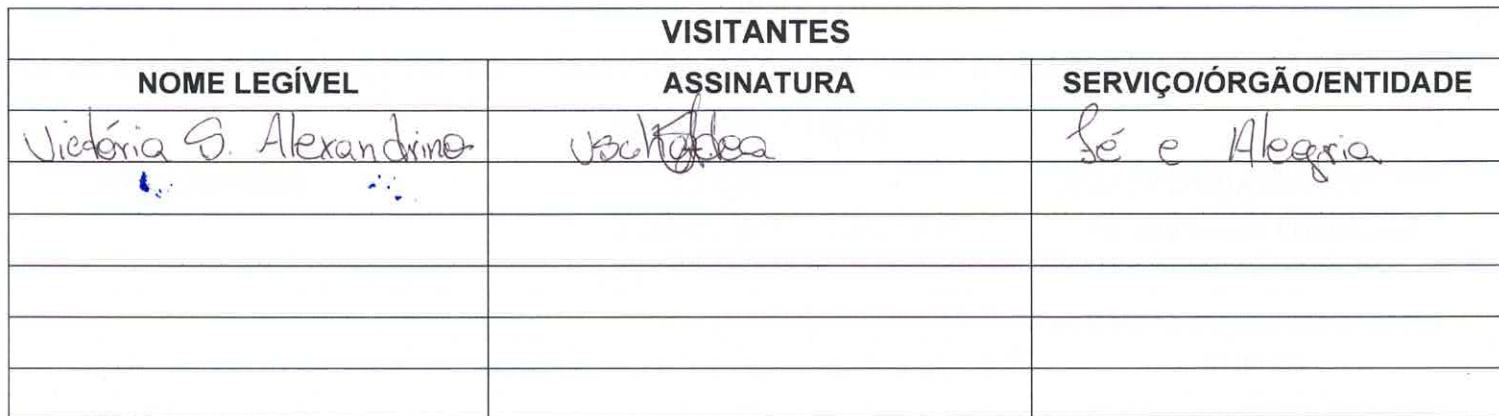 VISITANTES
NOME LEGÍVEL ASSINATURA SERVIÇO/ÓRGÃO/ENTIDADE
Victória S. Alexandrino Fé e Alegria